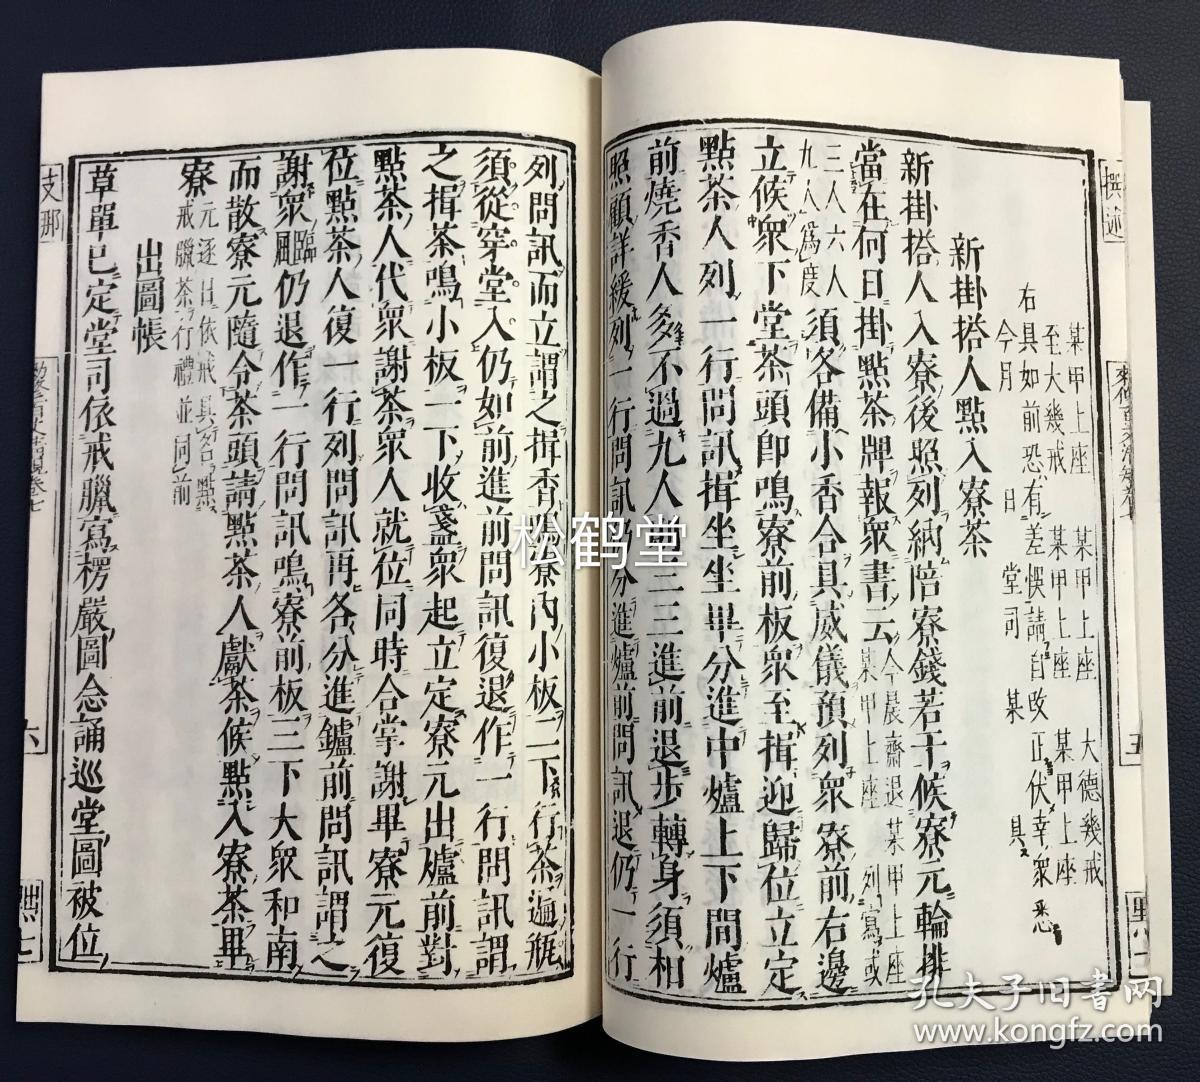 某甲上座　某甲上座　大德幾戒
至大幾戒　某甲上座　某甲上座
右具如前恐有差悞請自改正伏幸衆悉
今月　日　堂司　某　具
新掛搭人點入寮茶
新掛搭人入寮後照列納陪寮錢若干候寮元輪排
當在何日掛點茶牌報衆書云今晨齋退某甲上座某甲上座列寫或
三人六人九人爲度須各備小香合具威儀預列衆寮前右邊
立候衆下堂茶頭卽鳴寮前板衆至揖迎歸位立定
點茶人列一行問訊揖坐坐畢分進中爐上下間爐
前燒香人多不過九人三三進前退步轉身須相
照顧詳緩列一行問訊分進爐前問訊退仍一行
列問訊而立謂之揖香鳴寮內小板二下行茶遍瓶
須從穿堂入仍如前進前問訊復退作一行問訊謂
之揖茶鳴小板一下收盞衆起立定寮元出爐前對
點茶人代衆謝茶衆人就位同時合掌謝畢寮元復
位點茶人復一行列問訊再各分進鑪前問訊謂之
謝衆臨仍退作一行問訊鳴寮前板三下大衆和南
而散寮元隨令茶頭請點茶人獻茶候點入寮茶畢
寮元逐日依戒具名點戒臘茶行禮並同前
出圖帳
草單已定堂司依戒臘寫楞嚴圖念誦巡堂圖被位
撰述
五
支那
六
松鹤堂
孔夫子旧书网
www.kongfz.com